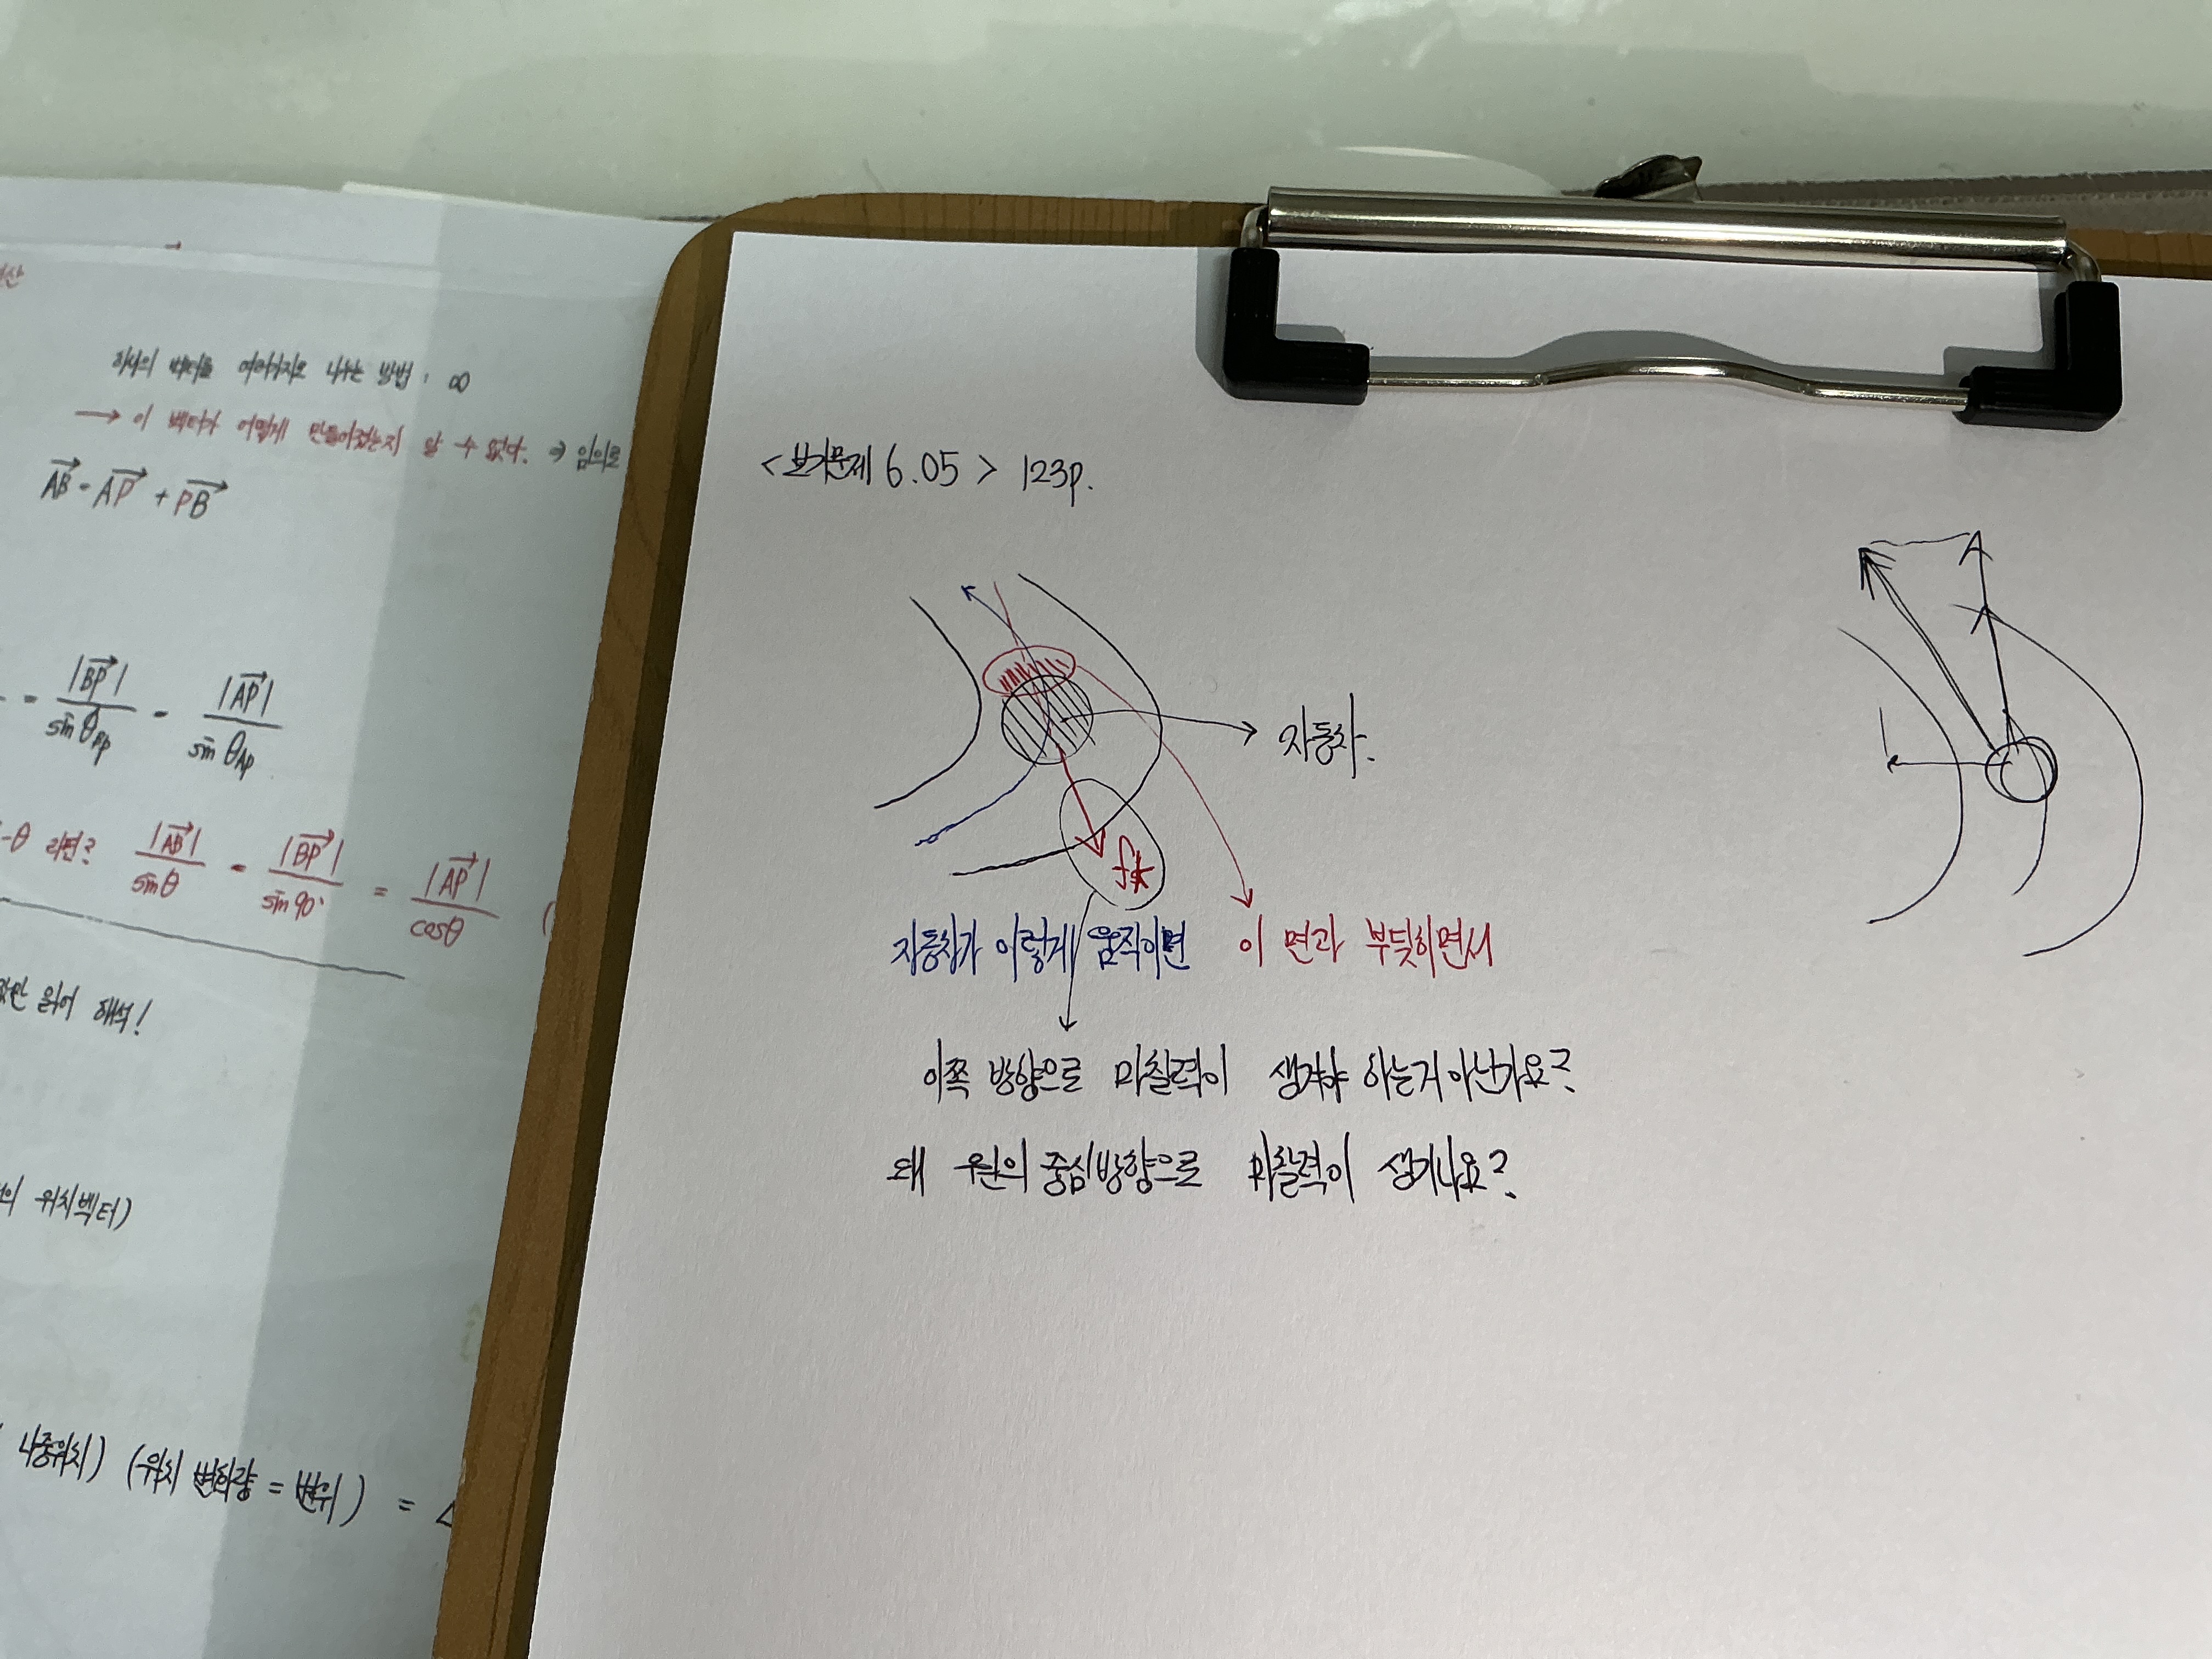 하나의 벡터를 여러가지로 나누는 방법 : ∞
→ 이 벡터가 어떻게 만들어졌는지 알 수 없다. ⇒ 임의로
AB = AP + PB
= |BP| / sinθBP = |AP| / sinθAP
-θ 라면? |AB| / sinθ = |BP| / sin90° = |AP| / cosθ (
읽어 해석!
의 위치벡터)
나중위치) (위치 변화량 = 변위) =
<보기문제 6.05> 123p.
자동차.
fk
자동차가 이렇게 움직이면 이 면과 부딪히면서
이쪽 방향으로 마찰력이 생겨야 하는거 아닌가요?
왜 원의 중심방향으로 마찰력이 생기나요?